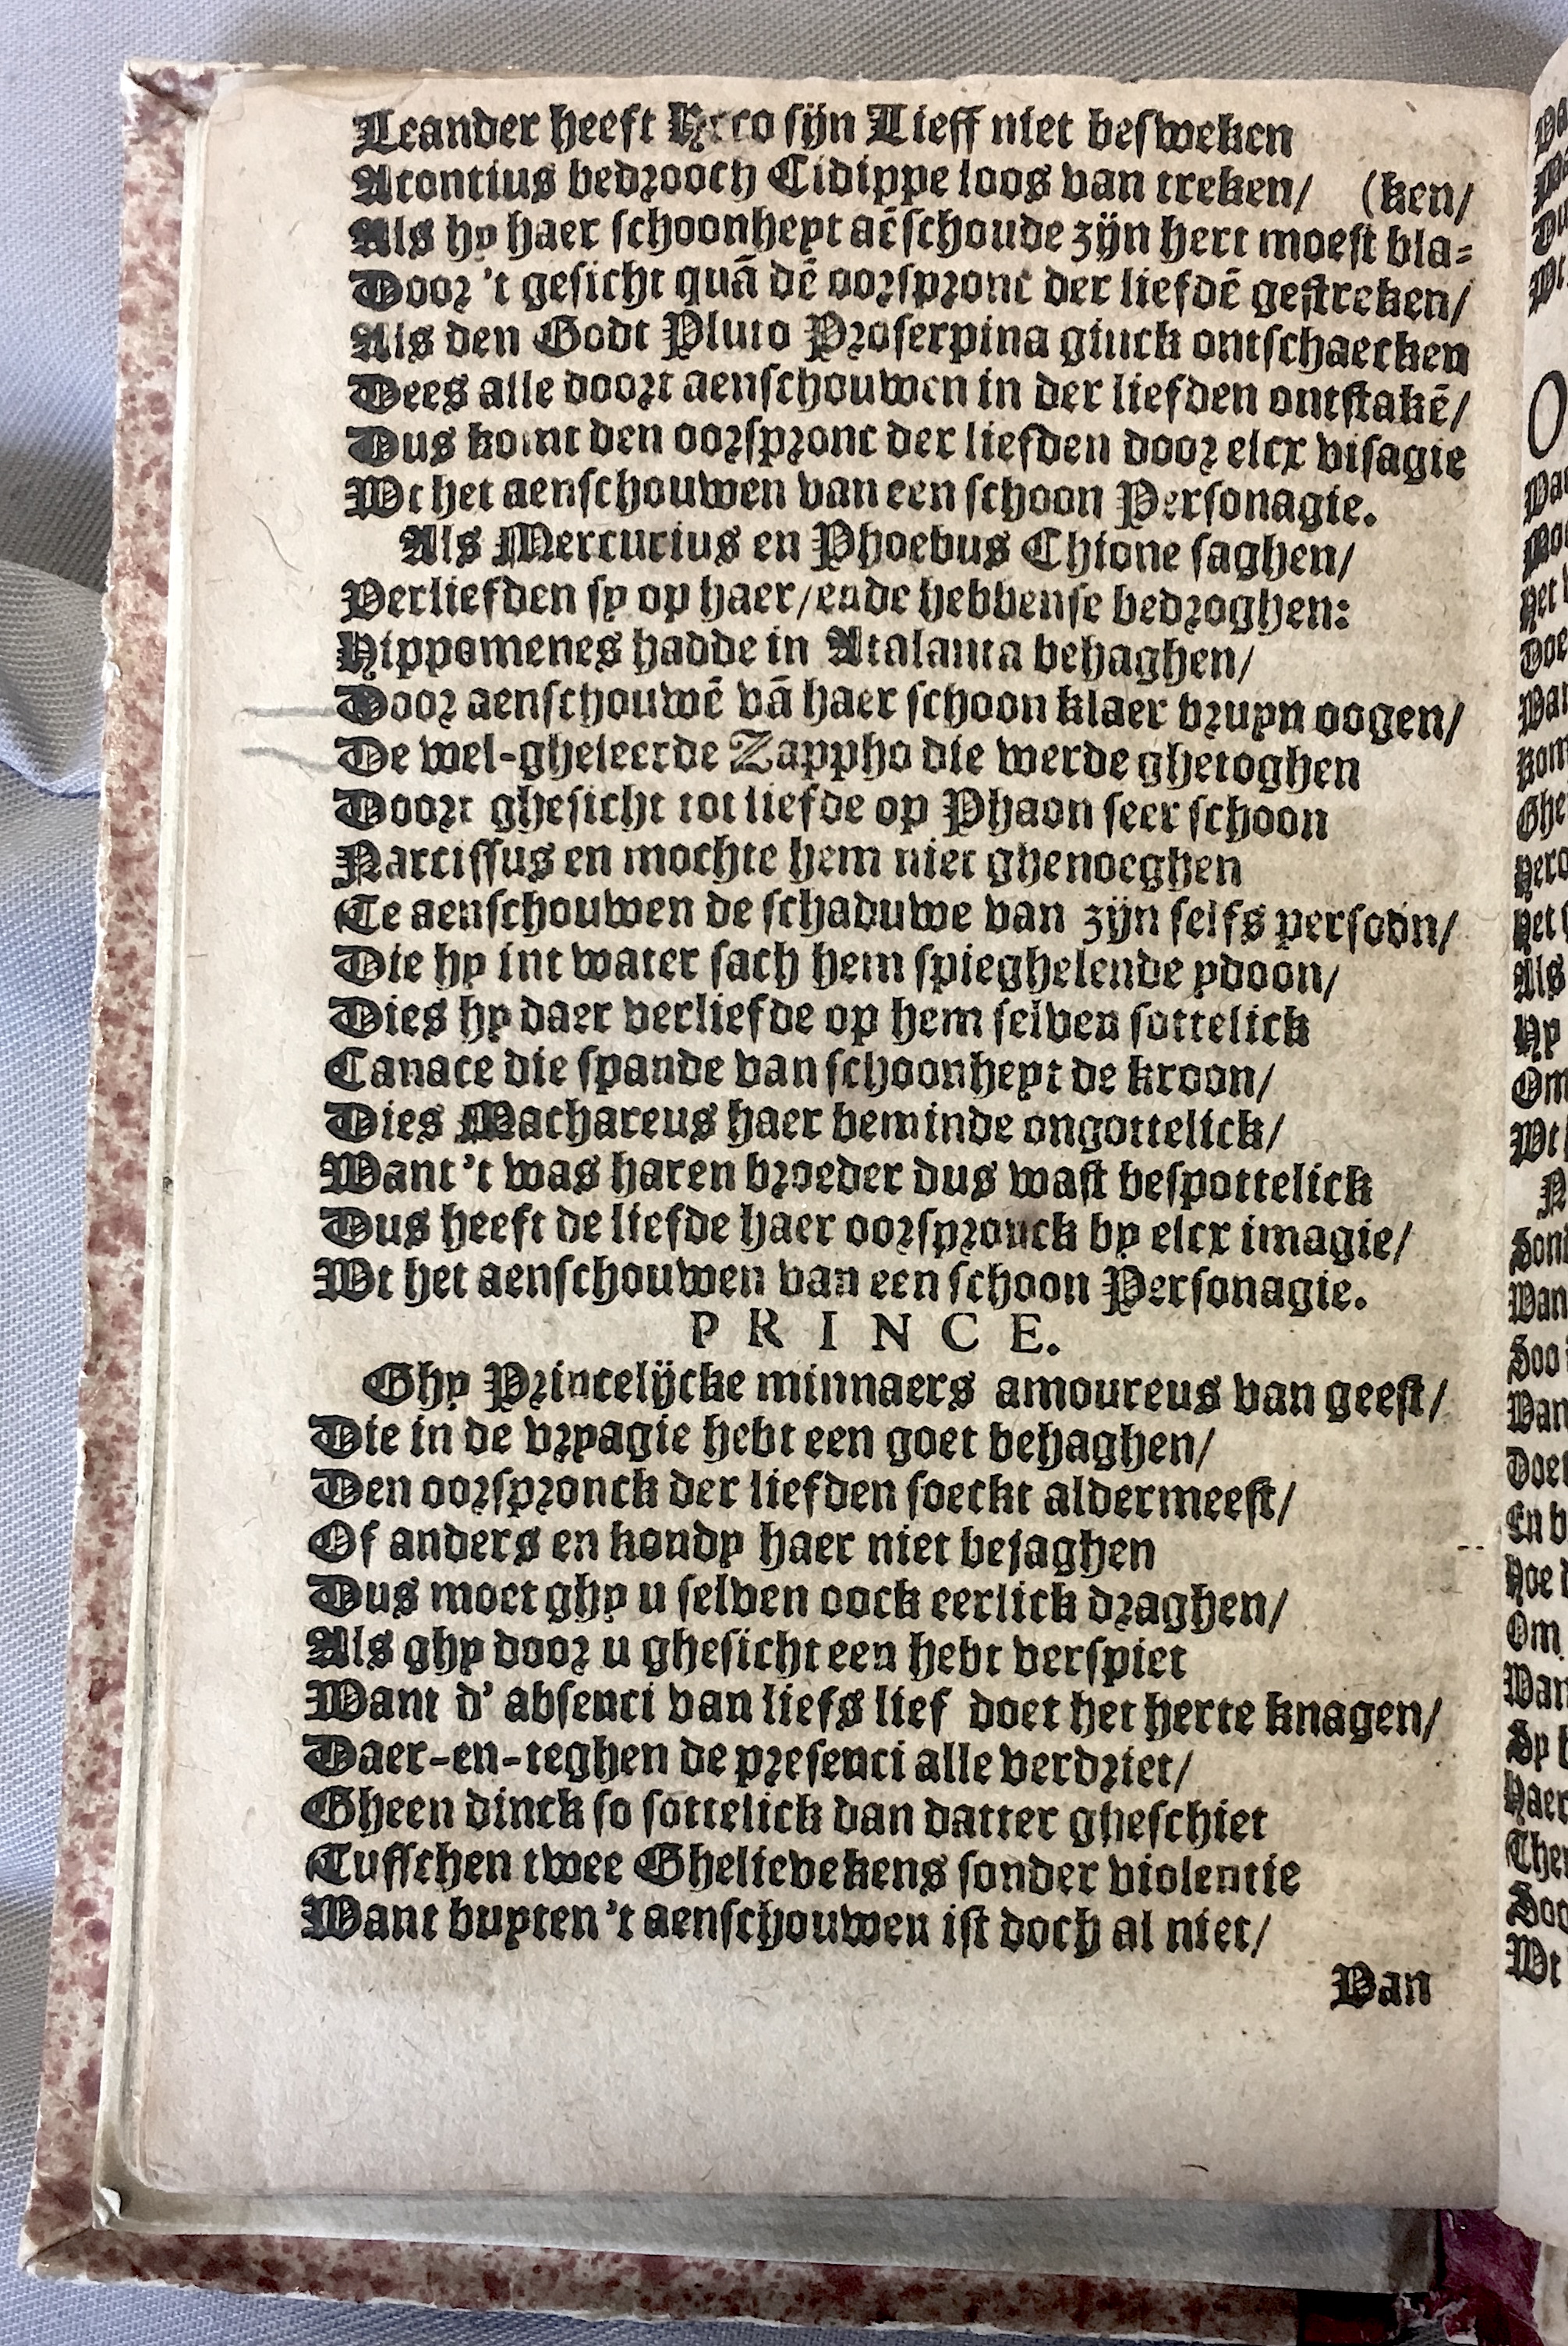 Leander heeft Hero sijn Lieff niet besweken
Acontius bedrooch Cidippe loos van treken/ (ken/
Als hy haer schoonheyt aēschoude zijn hert moest bla-
Door 't gesicht quā dē oorspronc der liefdē gestreken/
Als den Godt Pluto Proserpina ginck ontschaecken
Dees alle doort aenschouwen in der liefden ontstakē/
Dus komt den oorspronc der liefden door elcx visagie
Wt het aenschouwen van een schoon Personagie.
Als Mercurius en Phoebus Chione saghen/
Verliefden sy op haer/ ende hebbense bedroghen:
Hippomenes hadde in Atalanta behaghen/
Door aenschouwē vā haer schoon klaer bruyn oogen/
De wel-gheleerde Zappho die werde ghetoghen
Doort ghesicht tot liefde op Phaon seer schoon
Narcissus en mochte hem niet ghenoeghen
Te aenschouwen de schaduwe van zijn selfs persoon/
Die hy int water sach hem spieghelende ydoon/
Dies hy daer verliefde op hem selven sottelick
Canace die spande van schoonheyt de kroon/
Dies Machareus haer beminde ongottelick/
Want 't was haren broeder dus wast bespottelick
Dus heeft de liefde haer oorspronck by elcx imagie/
Wt het aenschouwen van een schoon Personagie.
PRINCE.
Ghy Princelijcke minnaers amoureus van geest/
Die in de vryagie hebt een goet behaghen/
Den oorspronck der liefden soeckt aldermeest/
Of anders en kondy haer niet bejaghen
Dus moet ghy u selven oock eerlick draghen/
Als ghy door u ghesicht een hebt verspiet
Want d' absenci van liefs lief doet het herte knagen/
Daer-en-teghen de presenci alle verdriet/
Gheen dinck so sottelick dan datter gheschiet
Tusschen twee Ghelievekens sonder violentie
Want buyten 't aenschouwen ist doch al niet/
Van